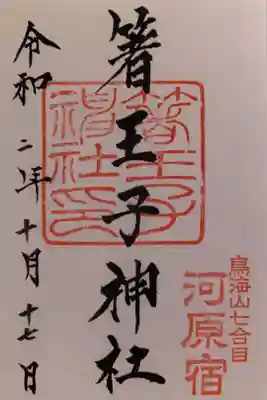 鳥海山七合目
河原宿
箸王子神社
箸王子
神社印
令和二年十月十七日